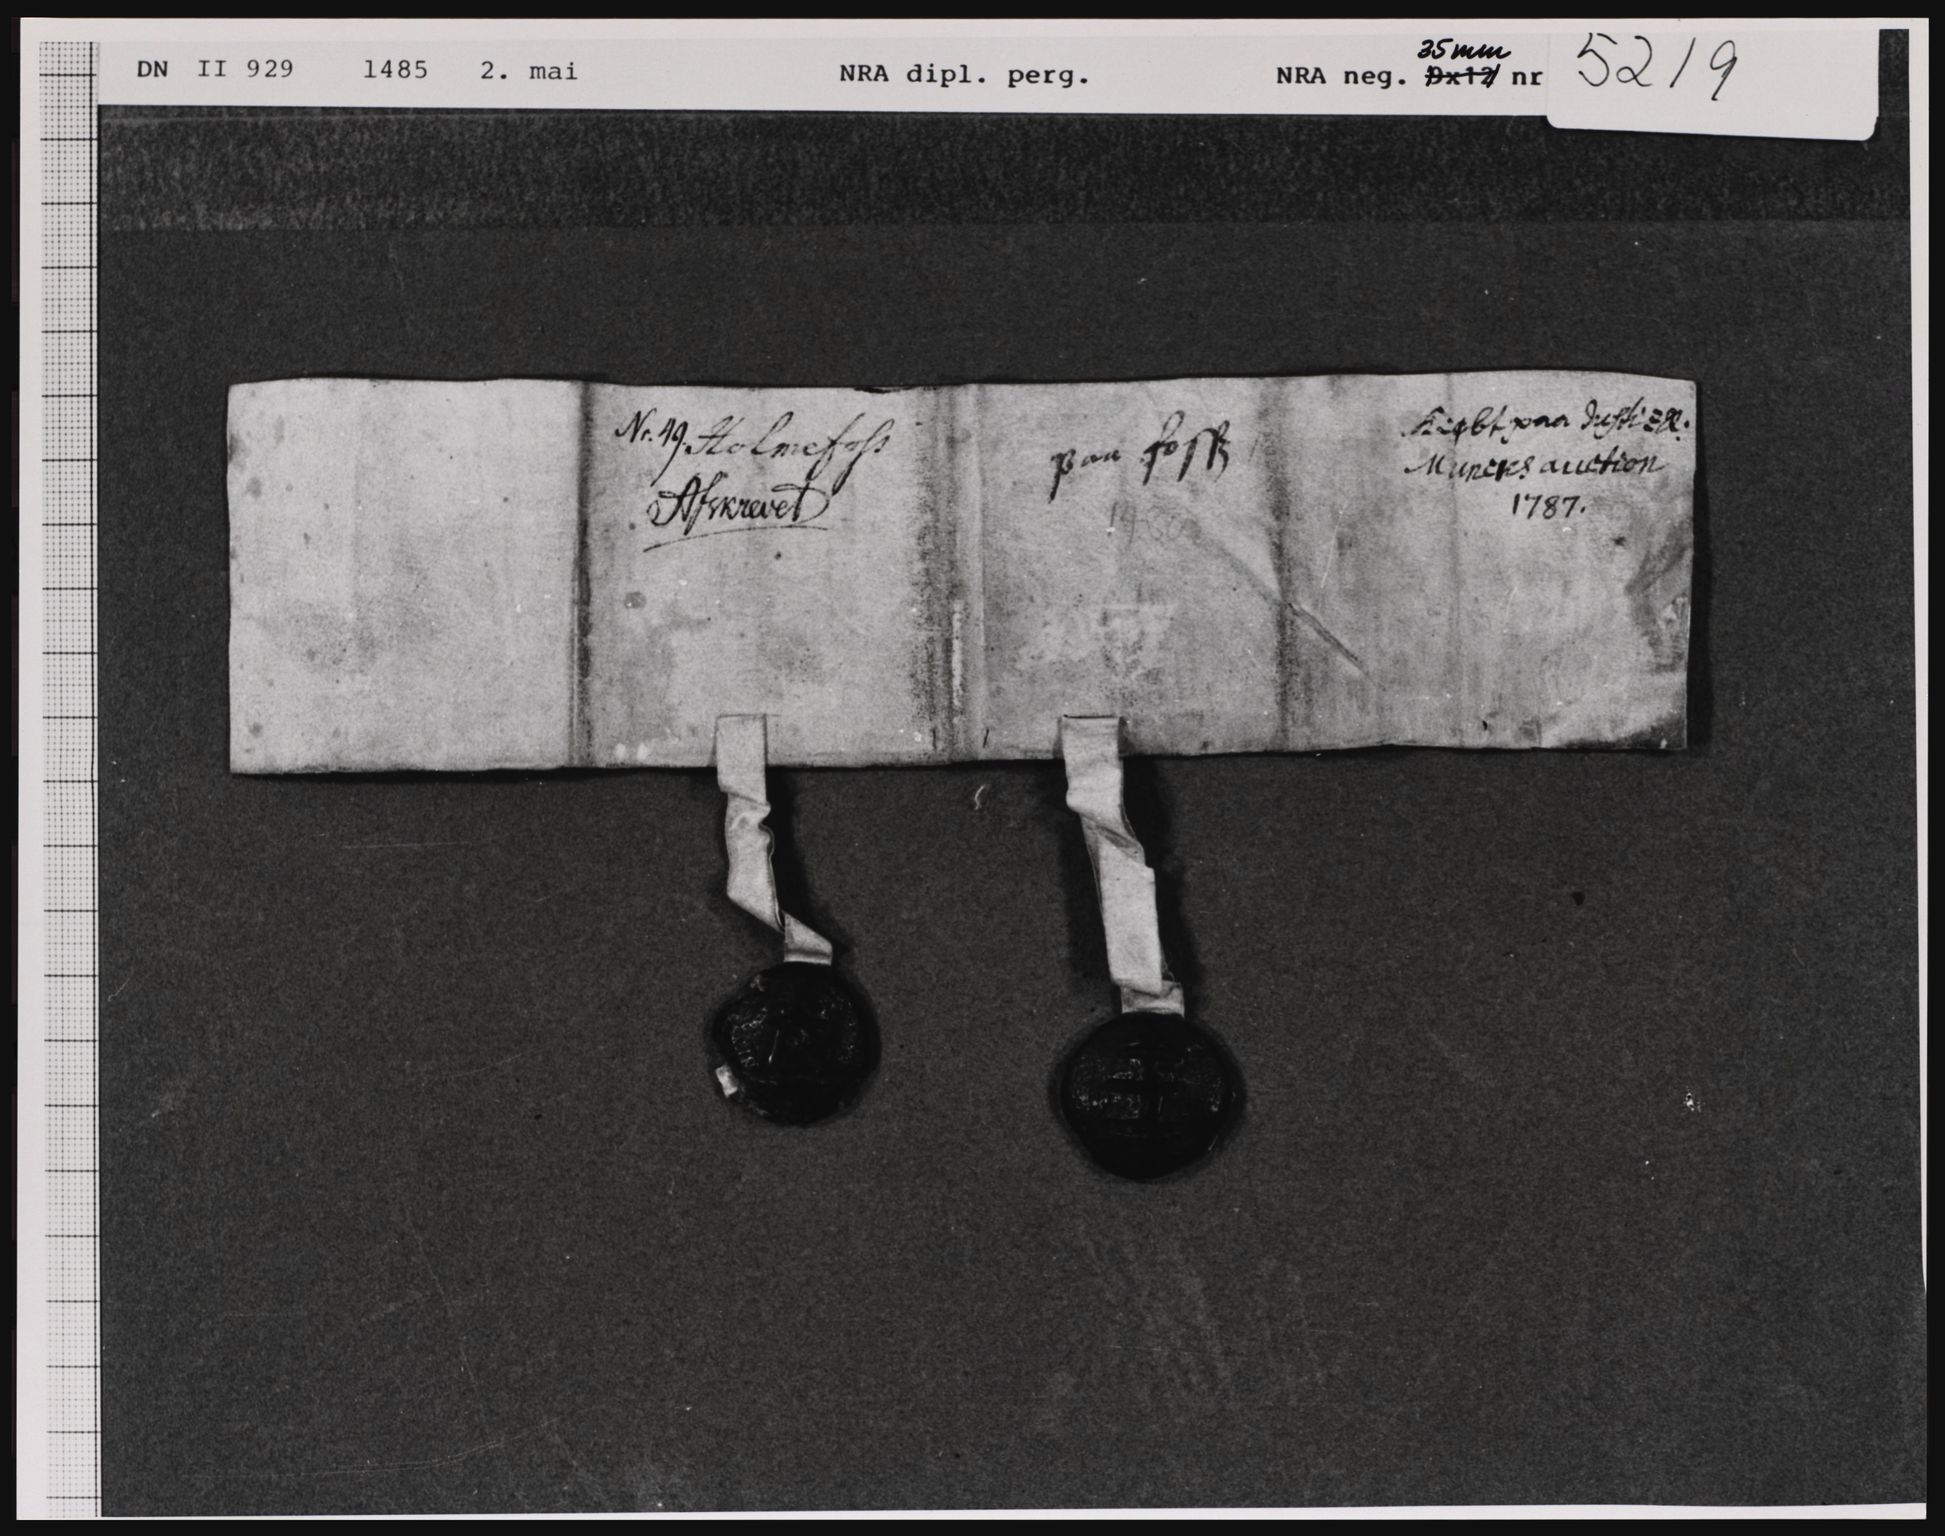 DN II 929 1485 2. mai NRA dipl. perg. NRA neg. 35mm 9x12 nr 5219
Nr. 49. Holmefoss
Afskrevet
paa foss
1480
Kiøbt paa Justizr.
Muncks auction
1787.